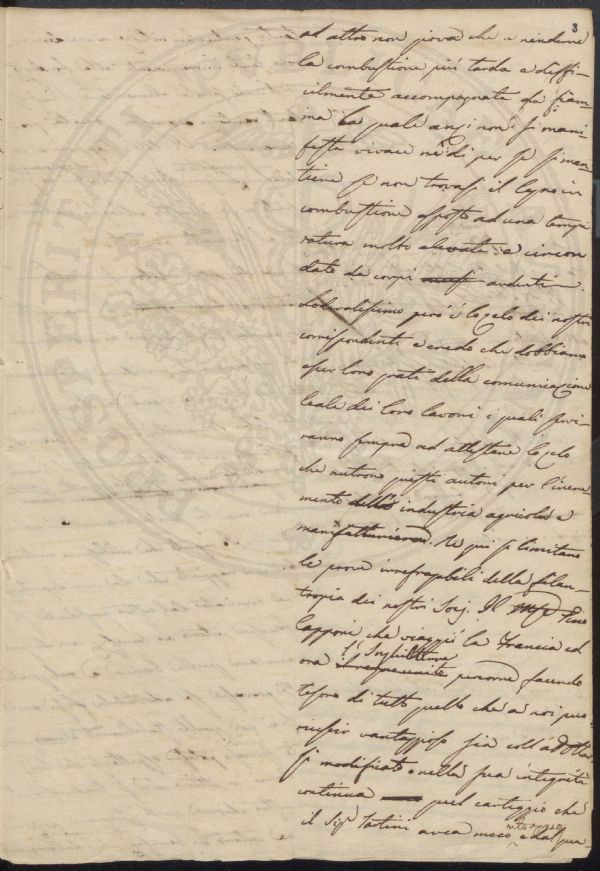 3
ad altro non giova che a renderne
la combustione più tarda e diffi-
cilmente accompagnata da fiam-
ma la quale anzi non si mani-
festa vivace nè di per se si man-
tiene se non trovasi il legno in
combustione esposto ad una tempe
ratura molto elevata e circon
data da corpi ardenti
Lodevolissimo però è lo zelo dei nostri
corrispondenti e credo che dobbiamo
esser loro grati della comunicazione
leale dei loro lavori i quali servi-
ranno sempre ad attestare lo zelo
che nutrono questi autori per l'incre-
mento dell' industria agricola e
manifatturiera. Ne qui si limitano
le prove irrefragabili della filan-
tropia dei nostri Socj. Il Mse Gino
Capponi che viaggiò la Francia ed
l'Inghilterra
ora percorre facendo
tesoro di tutto quello che a noi può
riuscir vantaggioso sia coll' adottar
si modificato o nella sua integrità
continua quel carteggio che
il Sigr Tartini avea meco
e dal qua